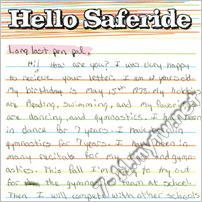 Hello Saferide
Long lost pen pal.
Hi! How are you? I was very happy
to recieve your letter. I am 12 yearsold
My birthday is may 15th 1975. my hobbies
are Reading, swimming, and my favorites
are dancing and gymnastics. I have been
in dance for 7 years. I have
gymnastics for 7 years. I have been in
many recitals for my and gymn-
astics. This fall I'm to try out
for the gymnastics team at school.
Then I will compete with other schools